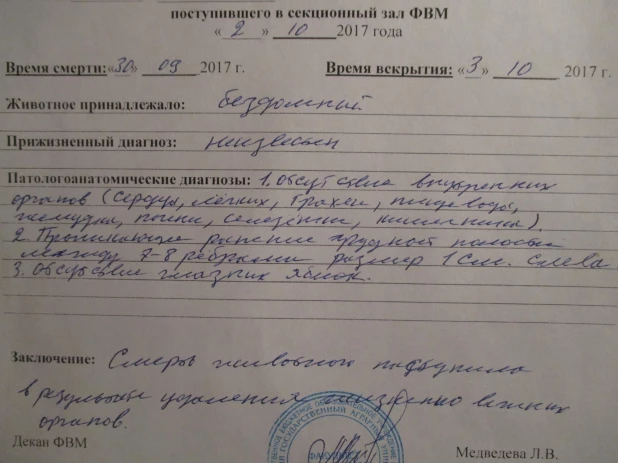 поступившего в секционный зал ФВМ
« 2 » 10 2017 года
Время смерти: «30» 09 2017 г. Время вскрытия: «3» 10 2017 г.
Животное принадлежало: бездомный
Прижизненный диагноз: неизвестен
Патологоанатомические диагнозы: 1. Отсутствие внутренних
органов (сердца, лёгких, трахеи, пищевода,
желудка, почки, селезёнки, кишечника).
2. Проникающее ранение грудной полости
между 7-8 рёбрами размер 1 см. слева
3. Отсутствие глазных яблок.
Заключение: Смерть животного наступила
в результате удаления жизненно важных
органов.
Декан ФВМ
Медведева Л.В.